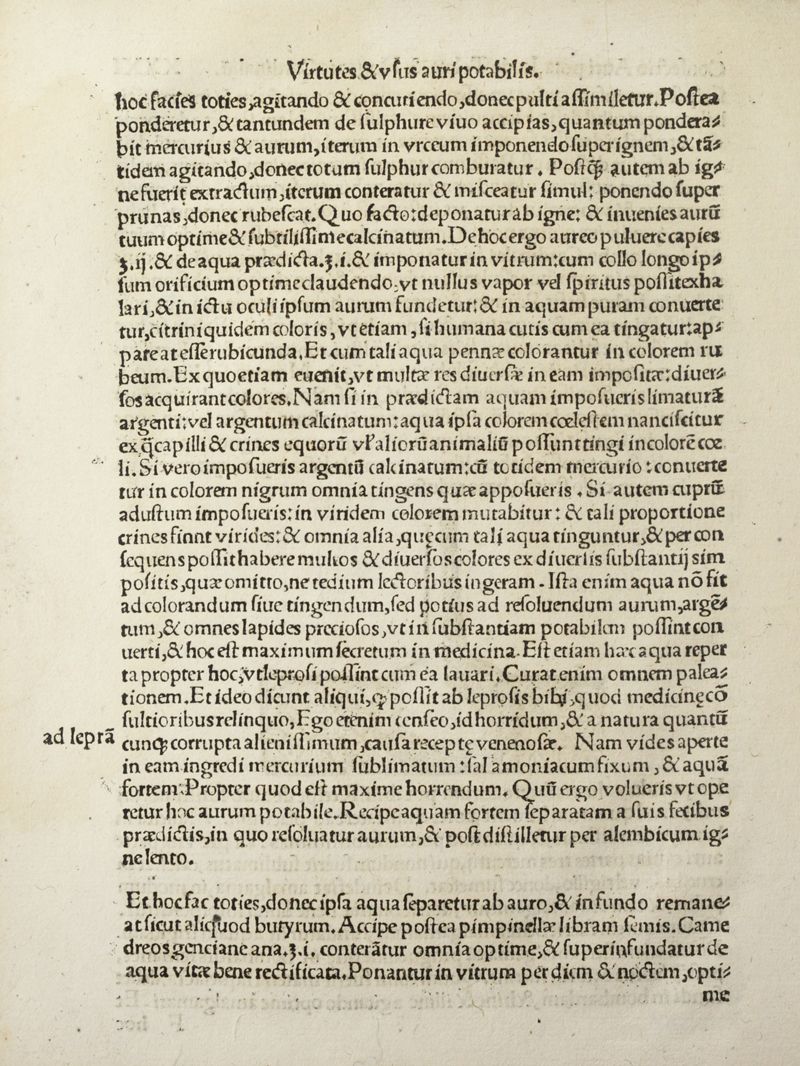 Virtutes & vſus auri potabilis.
hoc facies toties,agitando & concutiendo,donec pulti aſſimiletur.Poſtea
ponderetur,& tantundem de ſulphure viuo accipias,quantum pondera⸗
bit mercurius & aurum,iterum in vrceum imponendo ſuper ignem,& tã⸗
tidem agitando,donec totum ſulphur comburatur. Poſtꝙ autem ab ig⸗
ne fuerit extractum,iterum conteratur & miſceatur ſimul: ponendo ſuper
prunas,donec rubeſcat.Quo facto:deponatur ab igne: & inuenies aurũ
tuum optime & ſubtiliſſime calcinatum.De hoc ergo aureo puluere capies
ʒ.ij.& de aqua prædicta.ʒ.i.& imponatur in vitrum:cum collo longo ip⸗
ſum orificium optime claudendo,vt nullus vapor vel ſpiritus poſſit exha
lari,& in ictu oculi ipſum aurum fundetur:& in aquam puram conuerte
tur,citrini quidem coloris,vt etiam,ſi humana cutis cum ea tingatur:ap⸗
pareat eſſe rubicunda.Et cum tali aqua pennæ colorantur in colorem ru
beum.Ex quo etiam euenit,vt multæ res diuerſæ in eam impoſitæ:diuer⸗
ſos acquirant colores.Nam ſi in prædictam aquam impoſueris limaturã
argenti:vel argentum calcinatum:aqua ipſa colorem cœleſtem nanciſcitur
ex q̃ capilli & crines equorũ vľ aliorũ animaliũ poſſunt tingi in colorẽ cœ
li.Si vero impoſueris argentũ calcinatum:cũ totidem mercurio:conuerte
tur in colorem nigrum omnia tingens quæ appoſueris. Si autem cuprũ
aduſtum impoſueris:in viridem colorem mutabitur: & tali proportione
crines fiunt virides:& omnia alia,quęcum tali aqua tinguntur,& per con
ſequens poſſit habere multos & diuerſos colores ex diuerſis ſubſtantij ſim
poſitis,quæ omitto,ne tedium lectoribus ingeram. Iſta enim aqua nõ fit
ad colorandum ſiue tingendum,ſed potius ad reſoluendum aurum,argẽ⸗
tum,& omnes lapides precioſos,vt in ſubſtantiam potabilem poſſint con
uerti,& hoc eſt maximum ſecretum in medicina.Eſt etiam hæc aqua reper
ta propter hoc,vt leproſi poſſint cum ea lauari.Curat enim omnem palea⸗
tionem.Et ideo dicunt aliqui,ꝙ poſſit ab leproſis bibi,quod medicinę cõ
ſultioribus relinquo,Ego etenim cenſeo,id horridum,& a natura quantũ
ad leprã cunꝙ corrupta alieniſſimum,cauſa receptę venenoſæ. Nam vides aperte
in eam ingredi mercurium ſublimatum:ſal amoniacum fixum,& aquã
fortem.Propter quod eſt maxime horrendum. Quũ ergo volueris vt ope
retur hoc aurum potabile.Recipe aquam fortem ſeparatam a ſuis fecibus
prædictis,in quo reſoluatur aurum,& poſt diſtilletur per alembicum ig⸗
ne lento.
Et hoc fac toties,donec ipſa aqua ſeparetur ab auro,& in fundo remane⸗
at ſicut aliquod butyrum.Accipe poſtea pimpinellæ libram ſemis.Came
dreos genciane ana.ʒ.i. conterãtur omnia optime,& ſuperinfundatur de
aqua vitæ bene rectificata.Ponantur in vitrum per diem & noctem,opti⸗
me